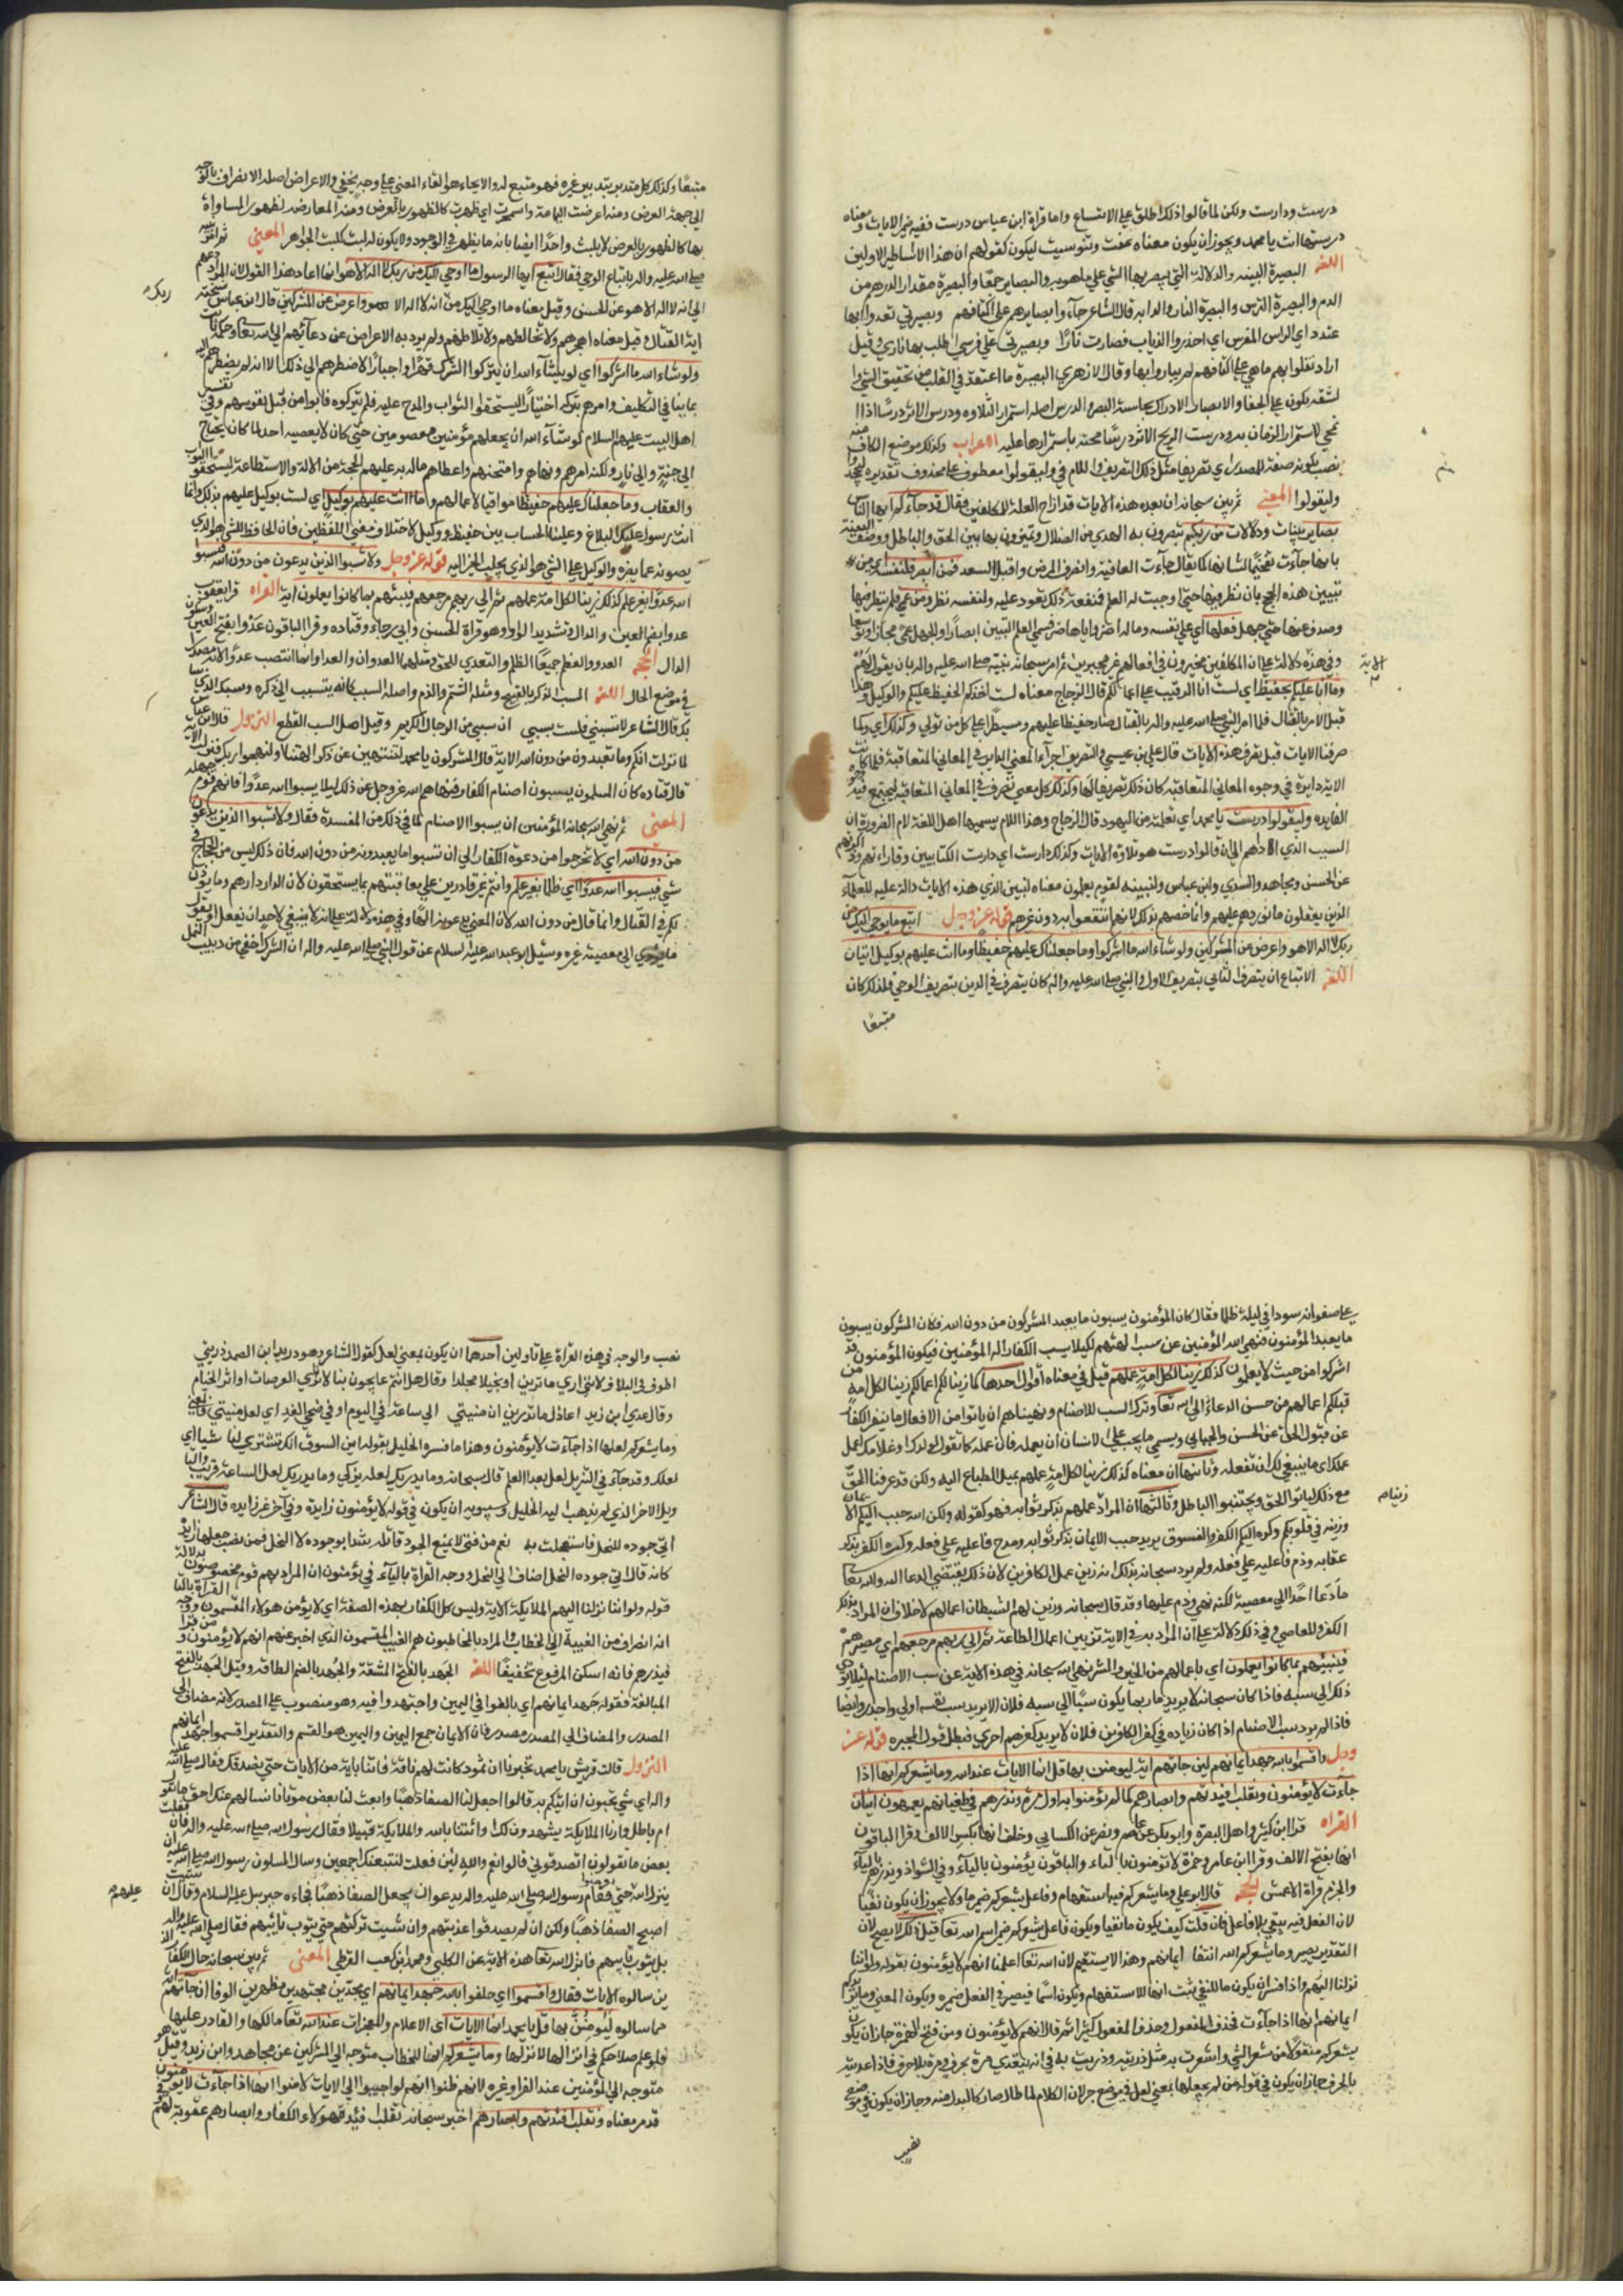 درست ودارست ولكن لما قالوا ذلك اطلق على الاتساع واما قراة ابن عباس درست ففيه ضمير الايات ومعناه
درستها انت يا محمد ويجوز ان يكون معناه عفت وتنوسيت ليكون كقولهم ان هذا الا اساطير الاولين
اللغة البصيرة البينه والدلالة التي يبصر بها الشي على ما هو به والبصاير جمعها والبصيرة مقدار الدرهم من
الدم والبصيرة الترس والبصيرة الثار والدابه قال الشاعر جاءوا بصايرهم على اكتافهم وبصيرتي تعدوا بها
عتد وای
اراد ثقلوا بهم ما هي على اكتافهم لم يباروا بها وقال الازهري البصيرة ما اعتقد في القلب من تحقيق الشي
لشقه يكون على الجفا والابصار الادراك بحاسة البصر والدرس اصله استمرار التلاوه ودرس الاثر درسا اذا
نمحي لاستمرار الزمان به ودرست الريح الاثر درسا محته باستمرارها عليه الاعراب وكذلك موضع الكاف
نصب بكونه صفة للمصدر اي نصرفها مثل ذلك التصريف واللام في وليقولوا معطوف على محذوف تقديره ليجحدوا
وليقولوا المعنى ثم بين سبحانه ان بعد هذه الايات قد ازاح العلة للمكلفين فقال قد جاءكم ايها الناس
بصاير بينات ودلالات من ربكم تبصرون به الهدي من الضلال وتميزون بها بين الحق والباطل ووصف البينة
بانها جاءت تفخيما لشانها كما يقال جاءت العافية وانصرف المرض واقبل السعد فمن ابصر فلنفسه اي من
تبين هذه الحجج بان نظر فيها حتى اوجبت له العلم فمنفعة ذلك تعود عليه ولنفسه نظر ومن عمي فلم ينظر فيها
وصدف عنها حتى جهل فعليها اي على نفسه وباله
وفي هذه دلالة على ان المكلفين مخيرون في افعالهم غير مجبرين ثم امر سبحانه نبيه صلى الله عليه واله بان يقول لهم
وما انا عليكم بحفيظ اي لست انا الرقيب على اعمالكم قال الزجاج معناه لست اخذكم الحفيظ عليكم والوكيل وهذا
قبل الامر بالقتال فلما امر النبي صلى الله عليه واله بالقتال صار حفيظا عليهم ومسيطرا على كل من تولى وكذلك اي وكما
صرفنا الايات قبل نصرف هذه الايات قال علي بن عيسى والتصريف اجراء المعنى الداير في المعاني المتعاقبة
الايه دايرة في وجوه المعاني المتعاقبه كان ذلك تصريفا لها وكذلك كل معنى تصرف في المعاني المتعاقبة ليجتمع فيه
الفايده وليقولوا درست يا محمد اي تعلمته من اليهود قال الزجاج وهذا اللام يسميها اهل اللغة لام الصيرورة ان
السبب الذي اداهم الى ان قالوا درست هو تلاوة الايات وكذلك دارست اي دارست الكتابيين وقاراتهم
عن الحسن ومجاهد والسدي وابن عباس ولنبينه لقوم يعلمون معناه لنبين الذي هذه الايات دالة عليه للعلماء
الذين يعقلون ما نورده عليهم وانما خصهم بذلك لانهم انتفعوا به دون غيرهم قوله عز وجل اتبع ما يوحى اليك من
ربك لا اله الا هو واعرض عن المشركين ولو شاء الله ما اشركوا وما جعلناك عليهم حفيظا وما انت عليهم بوكيل ايتان
اللغة الاتباع ان يتصرف الثاني بتصريف الاول والنبي صلى الله عليه واله كان يتصرف في الدين بتصريف الوحي فلذلك كان
متبعا
متبعا وكذلك كل متدبر يتدبير غيره فهو متبع له والايحاء هو القاء المعنى على وجه يخفي والاعراض اصله الانصراف بالوجه
الى جهة العرض ومنه اعرضت اليمامة واشمخرت اي ظهرت كالظهور بالعرض ومنه المعارضه لظهور المساواة
بها كالظهور بالعرض المعنى ثم امر نبيه
صلى الله عليه واله باتباع الوحي فقال اتبع ايها الرسول ما اوحي اليك من ربك لا اله الا هو انما اعاد هذا القول لان المراد ادعهم
الى انه لا اله الا هو عن الحسن وقيل معناه ما اوحي اليك من انه لا اله الا هو واعرض عن المشركين قال ابن عباس نسخته
اية القتال وقيل معناه اهجرهم ولا تخالطهم ولا تلاطفهم ولم يرد به الاعراض عن دعائهم الى الله تعالى
ولو شاء الله ما اشركوا اي لو يشاء الله ان يتركوا الشرك قهرا واجبارا لاضطرهم الى ذلك الا انه لم يضطرهم اليه
بما ينافي التكليف وامرهم بتركه اختيارا ليستحقوا الثواب والمدح عليه فلم يتركوه فاتوا من قبل نفوسهم وفي تفسير
اهل البيت عليهم السلام لو شاء الله ان يجعلهم مؤمنين معصومين حتى كان لا يعصيه احد لما كان يحتاج
الى جنة والى نار ولكنه امرهم ونهاهم وامتحنهم واعطاهم ماله به عليهم الحجة من الالة والاستطاعة ليستحقوا الثواب
والعقاب وما جعلناك عليهم حفيظا مراقبا لاعمالهم وما انت عليهم بوكيل اي لست بوكيل عليهم بذلك وانما
انت رسول عليك البلاغ وعلينا الحساب بين حفيظ ووكيل لاختلاف معنى اللفظين فان الحافظ للشي هو الذي
يصونه عما يضره والوكيل على الشي هو الذي يجلب الخير اليه قوله عز وجل ولا تسبوا الذين يدعون من دون الله فيسبوا
الله عدوا بغير علم كذلك زينا لكل امة عملهم ثم الى ربهم مرجعهم فينبئهم بما كانوا يعملون اية القراة قرا يعقوب
عدوا بضم العين والدال وتشديد الواو وهو قراة الحسن وابي رجاء وقتاده وقرا الباقون عدوا بفتح العين وسكون
الدال الحجة العدو والظلم جميعا الظلم والتعدي للحق ومثلهما العدوان والعداء وانما انتصب عدوا لانه مصدر
في موضع الحال اللغة السب الذكر بالقبيح ومثله الشتم والذم واصله السبب كانه يتسبب الى ذكره
قال الشاعر لا تسبنني فلست بسبي ان سبي من الرجال الكريم وقيل اصل السب القطع النزول قال ابن عباس
لما نزلت انكم وما تعبدون من دون الله الاية قال المشركون يا محمد لتنتهين عن ذكر الهتنا او لنهجون ربك
قال قتاده كان المسلمون يسبون اصنام الكفار فنهاهم الله عز وجل عن ذلك ليلا يسبوا الله عدوا فانهم قوم جهلة
المعنى ثم نهى الله سبحانه المؤمنين ان يسبوا الاصنام لما في ذلك من المفسدة فقال ولا تسبوا الذين يدعون
من دون الله اي لا تخرجوا من دعوة الكفار الى ان تسبوا ما يعبدونه من دون الله فان ذلك ليس من الحجاج في
شي فيسبوا الله عدوا اي ظلما بغير علم وانتم غير قادرين على معاقبتهم بما يستحقون لان الدار دارهم ولم يؤذن
لكم في القتال وانما قال من دون الله لان المعنى يدعونه الها وفي هذه دلالة على انه لا ينبغي لاحد ان يفعل او يقول
ما يؤدي الى معصية غيره وسئل ابو عبد الله عليه السلام عن قول النبي صلى الله عليه واله ان الشرك اخفى من دبيب النمل
على صفوانه سودا في ليلة ظلما فقال كان المؤمنون يسبون ما يعبد المشركون من دون الله فكان المشركون يسبون
ما يعبد المؤمنون فنهى الله المؤمنين عن سب الهتهم لكيلا يسب الكفار اله المؤمنين فيكون المؤمنون قد
اشركوا من حيث لا يعلمون كذلك زينا لكل امة عملهم قيل في معناه اقوال احدها كما زينا لكم اعمالكم زينا لكل امة من
قبلكم اعمالهم من حسن الدعاء الى الله تعالى وترك السب للاصنام ونهيناهم ان ياتوا من الافعال ما ينفر الكفار
عن قبول الحق عن الحسن والجبائي ويسمي ما يجب على الانسان ان يعمله فان عمله كما تقول لولدك او غلامك اعمل
عملك اي ما ينبغي لك ان تفعله وثانيها ان معناه كذلك زينا لكل امة عملهم بميل الطباع اليه ولكن قد عرفنا الحق
مع ذلك لياتوا الحق ويجتنبوا الباطل وثالثها ان المراد عملهم بذكر ثوابه فهو كقوله ولكن الله حبب اليكم الايمان
وزينه في قلوبكم وكره اليكم الكفر والفسوق يريد حبب الايمان بذكر ثوابه ومدح فاعليه على فعله وكره الكفر بذكر
عقابه وذم فاعليه على فعله ولم يرد سبحانه بذلك انه زين عمل الكافرين لان ذلك يقتضي الدعا اليه والله تعالى
ما دعا احدا الى معصية لكنه نهى وذم عليها وقد قال سبحانه وزين لهم الشيطان اعمالهم لا خلاف ان المراد بذلك
الكفر والمعاصي وفي ذلك دلالة على ان المراد به في الاية تزيين اعمال الطاعة ثم الى ربهم مرجعهم اي مصيرهم
فينبئهم بما كانوا يعملون اي باعمالهم من الخير والشر نهى الله سبحانه في هذه الاية عن سب الاصنام ليلا يؤدي
ذلك الى سبه فاذا كان سبحانه لا يريد ما ربما يكون سببا الى سبه فلان لا يريد سب نفسه اولى واجدر وايضا
فاذا لم يرد سب الاصنام اذا كان زياده في كفر الكافرين فلان لا يريد كفرهم احرى فبطل قول المجبره قوله عز
وجل واقسموا بالله جهد ايمانهم لين جاتهم اية ليومنن بها قل انما الايات عند الله وما يشعركم انها اذا
جاءت لا يؤمنون ونقلب افيدتهم وابصارهم كما لم يؤمنوا به اول مرة ونذرهم في طغيانهم يعمهون ايتان
القراة قرا ابن كثير واهل البصرة وابو بكر عن عاصم ونصير عن الكسايي وخلف انها بكسر الالف وقرا الباقون
انها بفتح الالف وقرا ابن عامر وحمزة لا تؤمنون بالتاء والباقون يؤمنون بالياء وفي الشواذ ويذرهم بالياء
والجزم قراة الاعمش الحجة قال ابو علي وما يشعركم فيه استفهام وفاعل يشعركم ضمير ما ولا يجوز ان يكون نفيا
لان الفعل فيه يبقى بلا فاعل فان قلت كيف يكون ما نفيا ويكون فاعل يشعركم ضمير اسم الله تعالى قيل ذلك لا يصح لان
التقدير يصير وما يشعركم الله انتفا ايمانهم وهذا لا يستقيم لان الله تعالى اعلمنا انهم لا يؤمنون بقوله ولو اننا
نزلنا اليهم واذا فسد ان يكون ما للنفي ثبت انها للاستفهام ويكون اسما فيصير في الفعل ضميره ويكون المعنى وما يدريكم
ايمانهم انها اذا جاءت فحذف المفعول وحذف المفعول كثير ثم قال انهم لا يؤمنون ومن فتح الهمزة جاز ان يكون
يشعركم منقولا من شعرت الشي واشعرت به مثل دريته ودريت به في انه يتعدى مرة بحرف ومرة بلا حرف فاذا عديته
بالحرف جاز ان يكون في قول من لم يجعلها بمعنى لعل في موضع جر لان الكلام لما طال صار كالبدل منه وجاز ان يكون في موضع
نصب
نصب والوجه في هذه القراة على تاويلين احدهما ان يكون بمعنى لعل كقول الشاعر وهو دريد ابن الصمه ذريني
اطوف في البلاد لانني ارى ما ترين او بخيلا مخلدا وقال هل انتم عايجون بنا لانا نرى العرصات او اثر الخيام
وقال عدي ابن زيد اعاذل ما يدريك ان منيتي الى ساعة في اليوم او في ضحى الغد اي لعل منيتي والمعنى
وما يشعركم لعلها اذا جاءت لا يؤمنون وهذا ما فسره الخليل بقوله ايت السوق انك تشتري لنا شيا اي
لعلك وقد جاء في التنزيل لعل بعد العلم قال سبحانه وما يدريك لعله يزكى وما يدريك لعل الساعة قريب والتا
ويل الاخر الذي لم يذهب اليه الخليل وسيبويه ان يكون في قوله لا يؤمنون زايدة وفي اخر غير زايده قال الشاعر
ابى جوده لا البخل واستعجلت به نعم من فتى لا يمنع الجود قاتله
كانه قال ابى جوده البخل اضاف الى البخل ووجه القراة بالياء في يؤمنون ان المراد بهم قوم مخصوصون بدلالة
قوله ولو اننا نزلنا اليهم الملايكة الاية وليس كل الكفار بهذه الصفة اي لا يؤمن هولاء المقسمون ووجه القراة بالتا
انه انصراف من الغيبة الى الخطاب والمراد بالمخاطبون هم الغيب المقسمون الذي اخبر عنهم انهم لا يؤمنون
فيذرهم فانه اسكن المرفوع تخفيفا اللغة الجهد بالفتح المشقة والجهد بالضم الطاقة وقيل الجهد بالفتح
المبالغة فقوله جهد ايمانهم اي بالغوا في اليمين واجتهدوا فيه وهو منصوب على المصدر لانه مضاف الى
المصدر والمضاف الى المصدر مصدر فان الايمان جمع اليمين واليمين هو القسم والتقدير اقسموا جهد ايمانهم
النزول قالت قريش يا محمد تخبرنا ان ثمود كانت لهم ناقة فاتنا باية من الايات حتى نصدقك فقال صلى الله عليه
واله اي شي تحبون ان اتيكم به قالوا اجعل لنا الصفا ذهبا وابعث لنا بعض موتانا نسالهم عنك احق ما تقول
ام باطل وارنا الملايكة يشهدون لك او ائتنا بالله والملايكة قبيلا فقال رسول الله صلى الله عليه واله فان فعلت
بعض ما تقولون اتصدقوني قالوا نعم والله لئن فعلت لنتبعنك اجمعين وسال المسلمون رسول الله صلى الله عليه ان
ينزلها حتى يؤمنوا فقام رسول الله صلى الله عليه واله يدعو ان يجعل الصفا ذهبا فجاءه جبرييل عليه السلام وقال ان شيت
اصبح الصفا ذهبا ولكن ان لم يصدقوا عذبتهم وان شيت تركتهم حتى يتوب تايبهم فقال صلى الله عليه واله
بل يتوب تايبهم فانزل الله تعالى هذه الاية عن الكلبي ومحمد ابن كعب القرظي المعنى ثم بين سبحانه حال الكفار
الذين سالوه الايات فقال واقسموا اي حلفوا بالله جهد ايمانهم اي مجدين مجتهدين مظهرين الوفا ان جاءتهم اية
مما سالوه ليؤمنن بها قل يا محمد انما الايات اي الاعلام والمعجزات عند الله تعالى مالكها والقادر عليها
فلو علم صلاحكم في انزالها لانزلها وما يشعركم انها للخطاب متوجه الى المشركين عن مجاهد وابن زيد وقيل هو
متوجه الى المؤمنين عند الفرا وغيره لانهم ظنوا انهم لو اجيبوا الى الايات لامنوا انها اذا جاءت لا يؤمنون
قد مر معناه ونقلب افئدتهم وابصارهم اخبر سبحانه نقلب افئدة هؤلاء الكفار وابصارهم عقوبة لهم